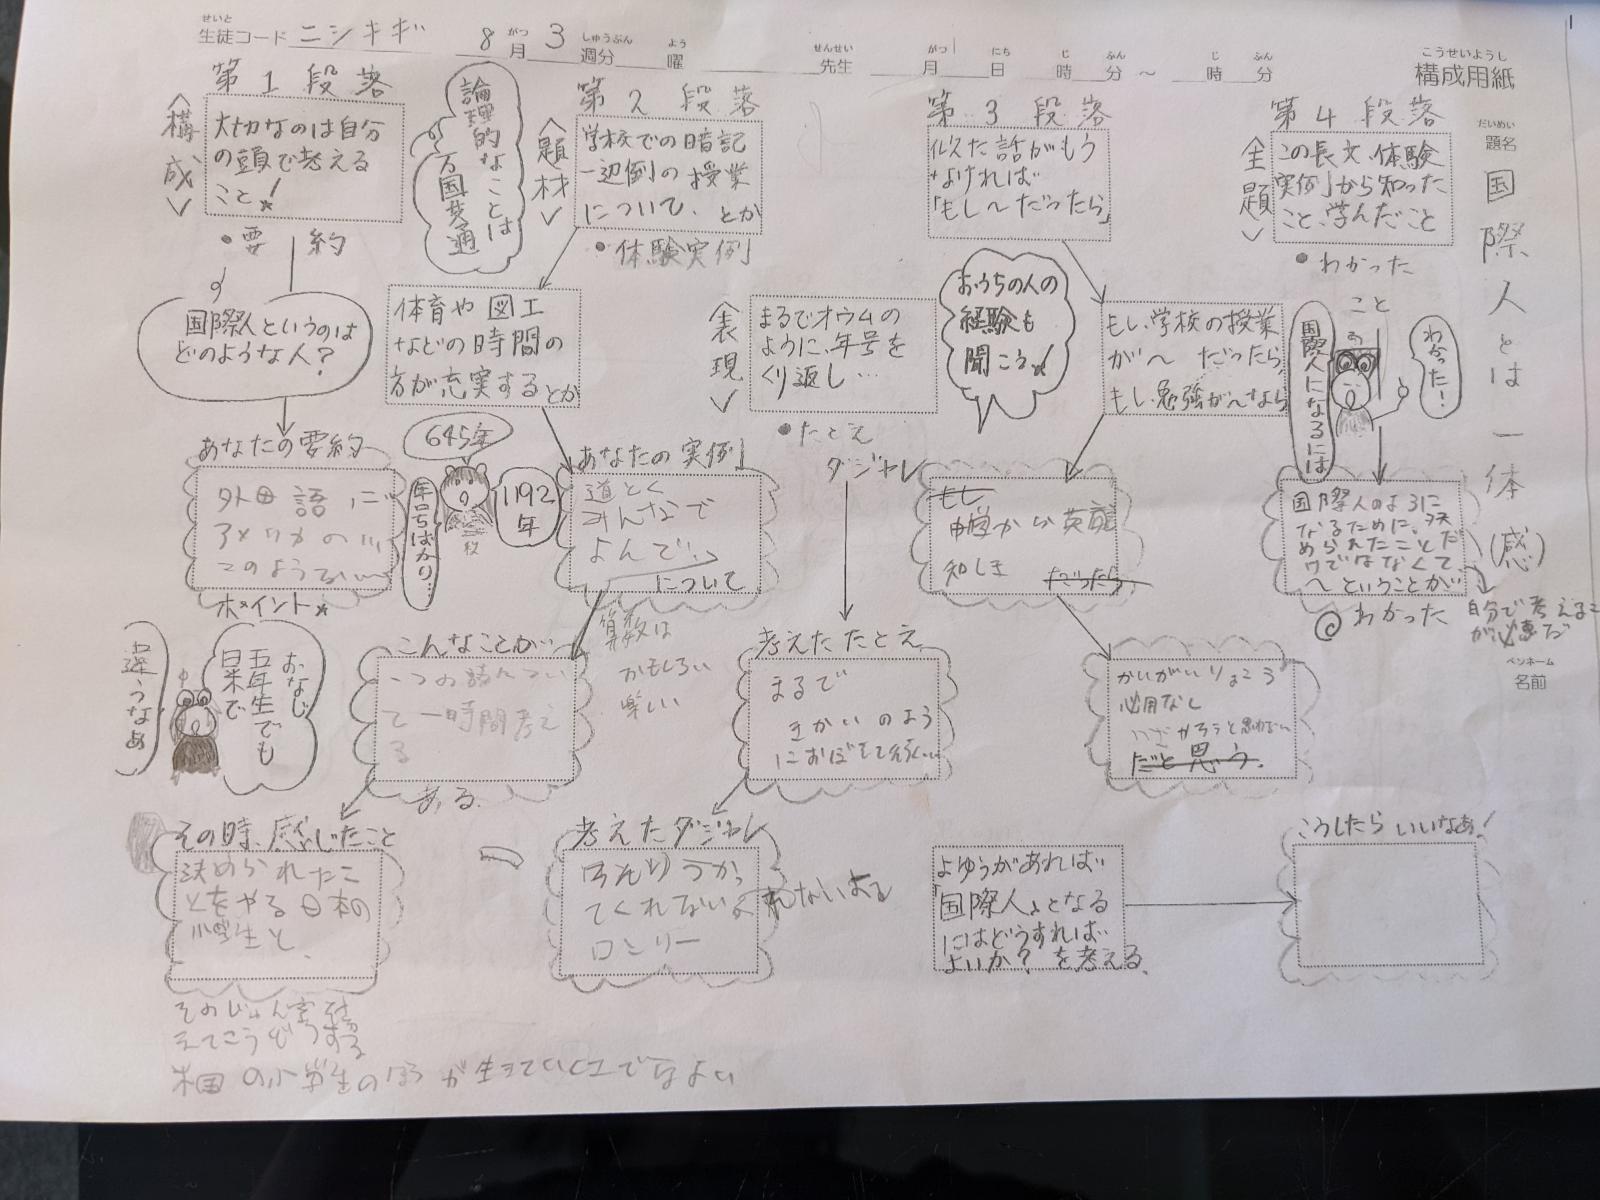 せいと
生徒コード ニシキギ 8 がつ 月 3 しゅうぶん 週分 よう 曜 せんせい 先生 がつ 月 にち 日 じ 時 ふん 分 ～ じ 時 ふん 分
こうせいようし
構成用紙
だいめい
題名
国際人とは一体(感)
ペンネーム
名前
第1段落
＜構成＞
大切なのは自分
の頭で考える
こと!
・要約
国際人というのは
どのような人?
あなたの要約
外国語に
アメリカの
このような
ポイント
おなじ
五年生でも
日米で
違うなぁ
こんなことが
一つの
て一時間考え
る
ある.
その時、感じたこと
決められたこ
とをやる日本の
小学生と、
えてこうどうする
米国の小学生のほうが生きていく上でなよい
論理的なことは
万国共通
第2段落
＜題材＞
学校での暗記
一辺倒の授業
について、とか
・体験実例
体育や図工
などの時間の
方が充実するとか
645年
1192年
年号ばかり…
あなたの実例
道とく
みんなで
よんで
について
算数は
おもしろい
楽しい
＜表現＞
まるでオウムの
ように、年号を
くり返し…
・たとえ
ダジャレ
考えたたとえ
まるで
きかいのよう
におぼえて
考えたダジャレ
てくれない
ロンリー
第3段落
似た話がもう
なければ
「もし〜だったら」
おうちの人の
経験も
聞こう!
もし、学校の授業
が〜だったら、
もし、勉強が〜なら、
もし
英語
知しき
だったら
かいがいりょこう
必用なし
だと思う.
よゆうがあれば
「国際人」となる
にはどうすれば
よいか?を考える.
第4段落
＜主題＞
この長文、体験
実例から知った
こと、学んだこと
・わかった
こと
わかった!
国際人になるには
国際人のように
なるために、決
められたことだ
けでなくて、
〜ということが
わかった
自分で考えるこ
が必要だ
こうしたらいいなぁ!